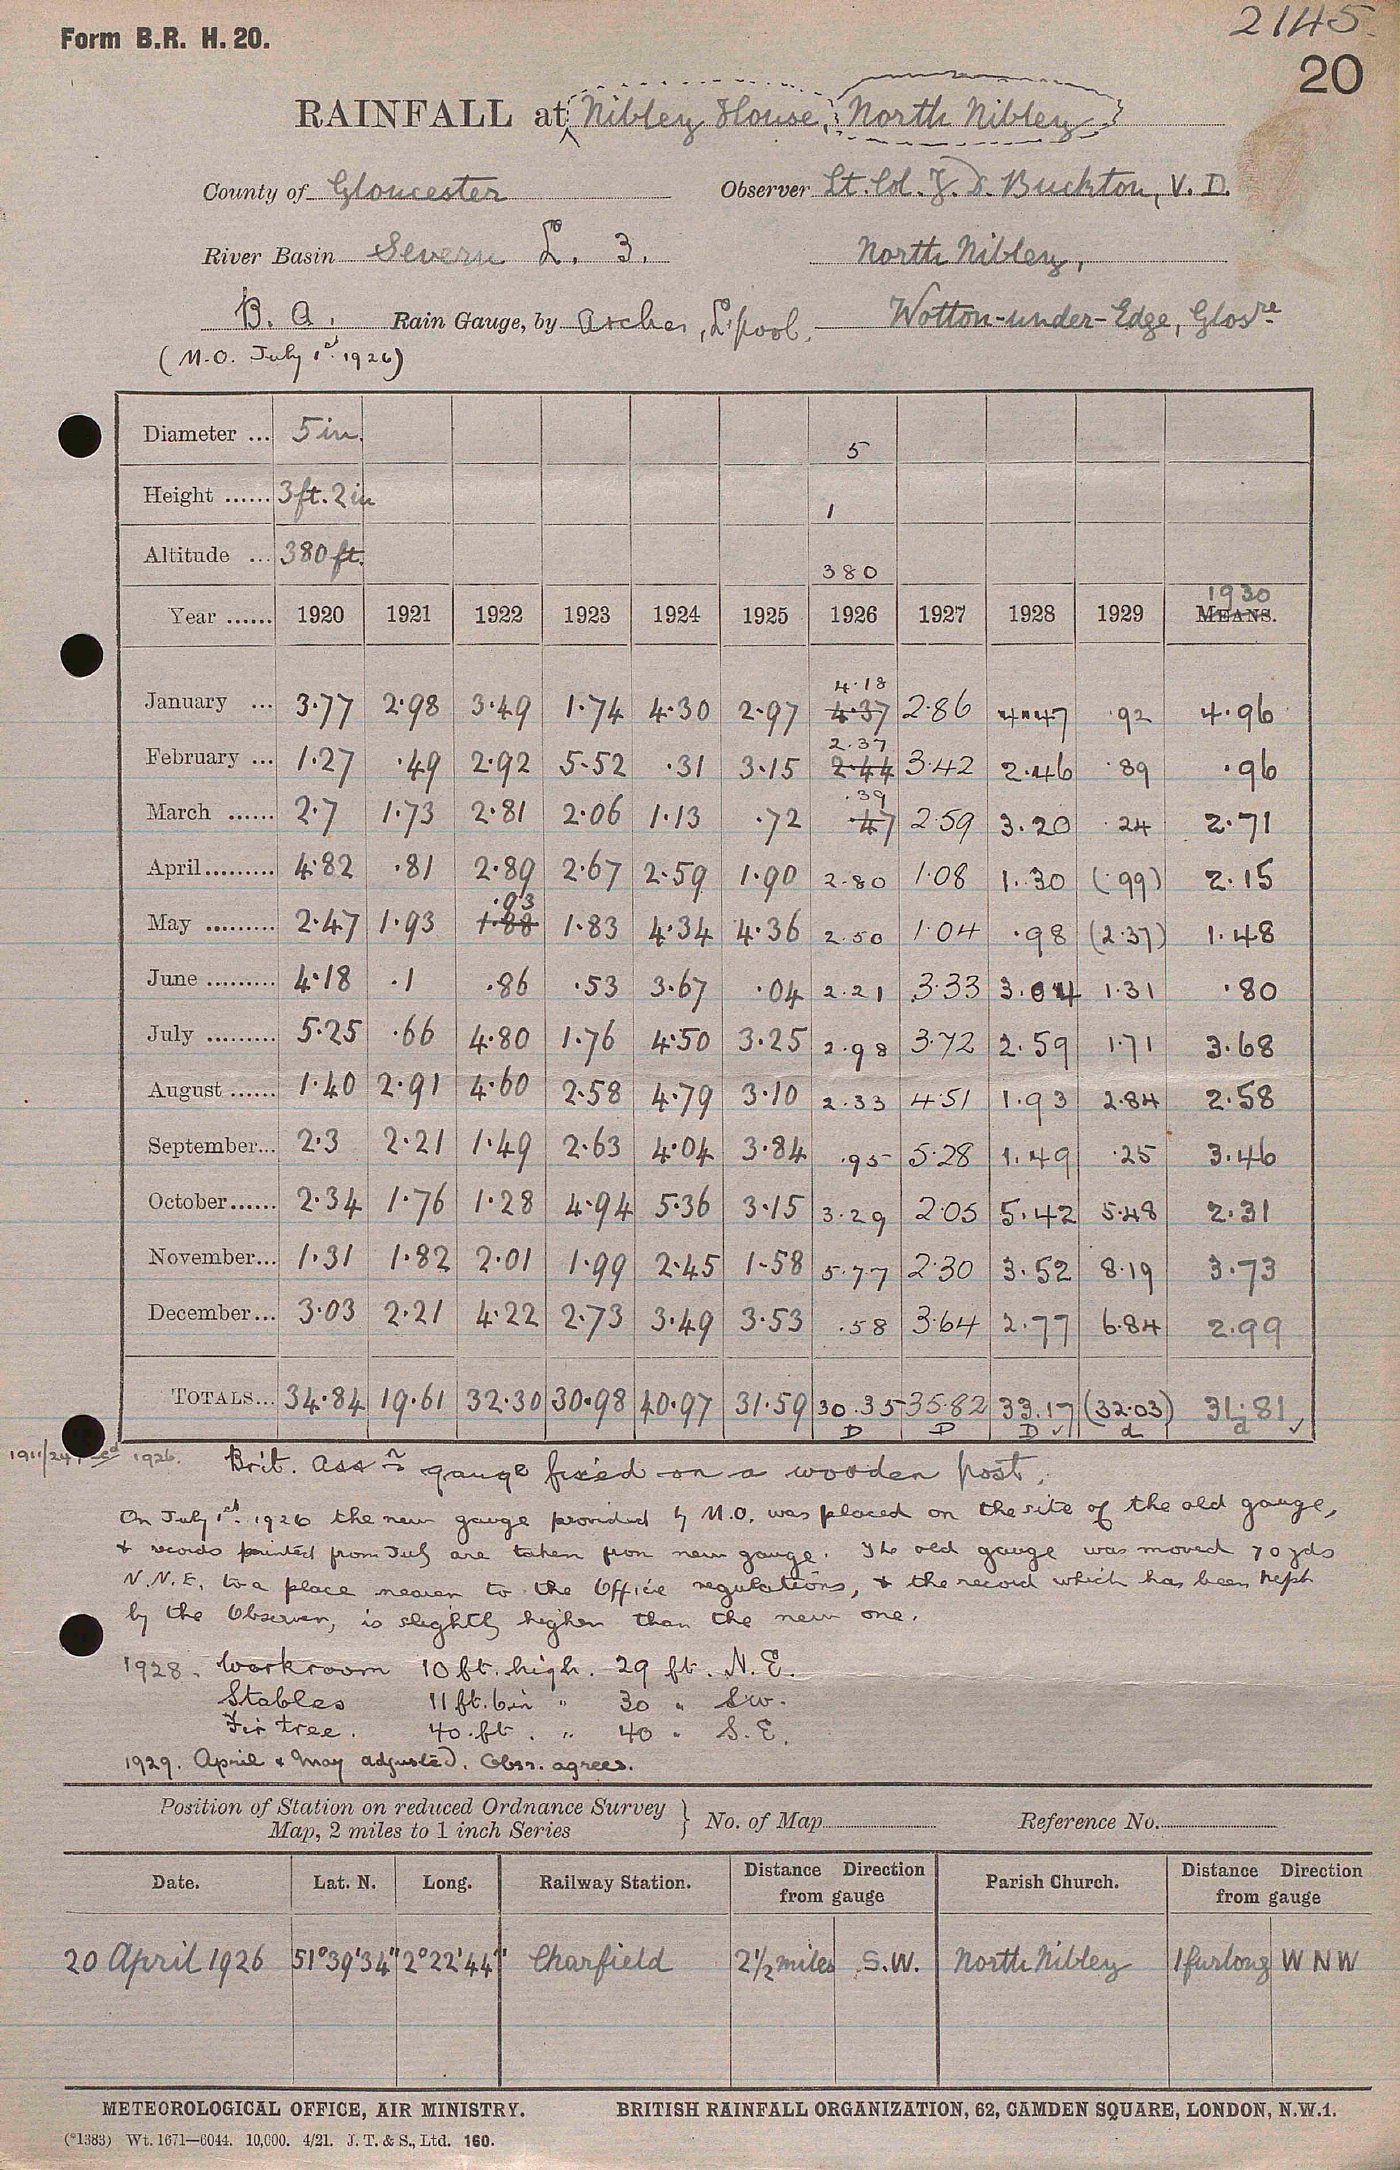 2145.
Form B.R. H. 20.
20
RAINFALL at Nibley House, North Nibley
County of Gloucester Observer Lt. Col. J. D. Buckton, V. D.
River Basin Severn L. 3. North Nibley,
B. A. Rain Gauge, by Archer, L'pool. Wotton-under-Edge, Glosre
(M.O. July 1st 1926)
Diameter ... 5 in. 5
Height ...... 3 ft. 2 in 1
Altitude ... 380 ft. 380
1930
Year ...... 1920 1921 1922 1923 1924 1925 1926 1927 1928 1929 MEANS.
4.18
January ... 3.77 2.98 3.49 1.74 4.30 2.97 4.37 2.86 4.47 .92 4.96
2.37
February ... 1.27 .49 2.92 5.52 .31 3.15 2.44 3.42 2.46 .89 .96
.39
March ...... 2.7 1.73 2.81 2.06 1.13 .72 .47 2.59 3.20 .24 2.71
April......... 4.82 .81 2.89 2.67 2.59 1.90 2.80 1.08 1.30 (.99) 2.15
.93
May ......... 2.47 1.93 1.88 1.83 4.34 4.36 2.50 1.04 .98 (2.37) 1.48
June ......... 4.18 .1 .86 .53 3.67 .04 2.21 3.33 3.04 1.31 .80
July ......... 5.25 .66 4.80 1.76 4.50 3.25 2.98 3.72 2.59 1.71 3.68
August ...... 1.40 2.91 4.60 2.58 4.79 3.10 2.33 4.51 1.93 2.84 2.58
September... 2.3 2.21 1.49 2.63 4.04 3.84 .95 5.28 1.49 .25 3.46
October...... 2.34 1.76 1.28 4.94 5.36 3.15 3.29 2.05 5.42 5.48 2.31
November... 1.31 1.82 2.01 1.99 2.45 1.58 5.77 2.30 3.52 8.19 3.73
December... 3.03 2.21 4.22 2.73 3.49 3.53 .58 3.64 2.77 6.84 2.99
TOTALS... 34.84 19.61 32.30 30.98 40.97 31.59 30.35 35.82 33.17 (32.03) 31.81
D D D ✓ d d ✓
1926. Brit. Assn gauge fixed on a wooden post.
On July 1st 1926 the new gauge provided by M.O. was placed on the site of the old gauge,
& records printed from July are taken from new gauge. The old gauge was moved 70 yds
N.N.E. to a place nearer to the Office regulations, & the record which has been kept
by the Observer, is slightly higher than the new one.
1928. Workroom 10 ft. high. 29 ft. N.E.
Stables 11 ft. 6 in " 30 " SW.
Fir tree. 40. ft. " 40 " S.E.
1929. April & May adjusted. Obsr. agrees.
Position of Station on reduced Ordnance Survey
Map, 2 miles to 1 inch Series } No. of Map Reference No.
Date. Lat. N. Long. Railway Station. Distance Direction from gauge Parish Church. Distance Direction from gauge
20 April 1926 51°39'34" 2°22'44" Charfield 2½ miles S.W. North Nibley 1 furlong W N W
METEOROLOGICAL OFFICE, AIR MINISTRY. BRITISH RAINFALL ORGANIZATION, 62, CAMDEN SQUARE, LONDON, N.W.1.
(*1383) Wt. 1671—6044. 10,000. 4/21. J. T. & S., Ltd. 160.